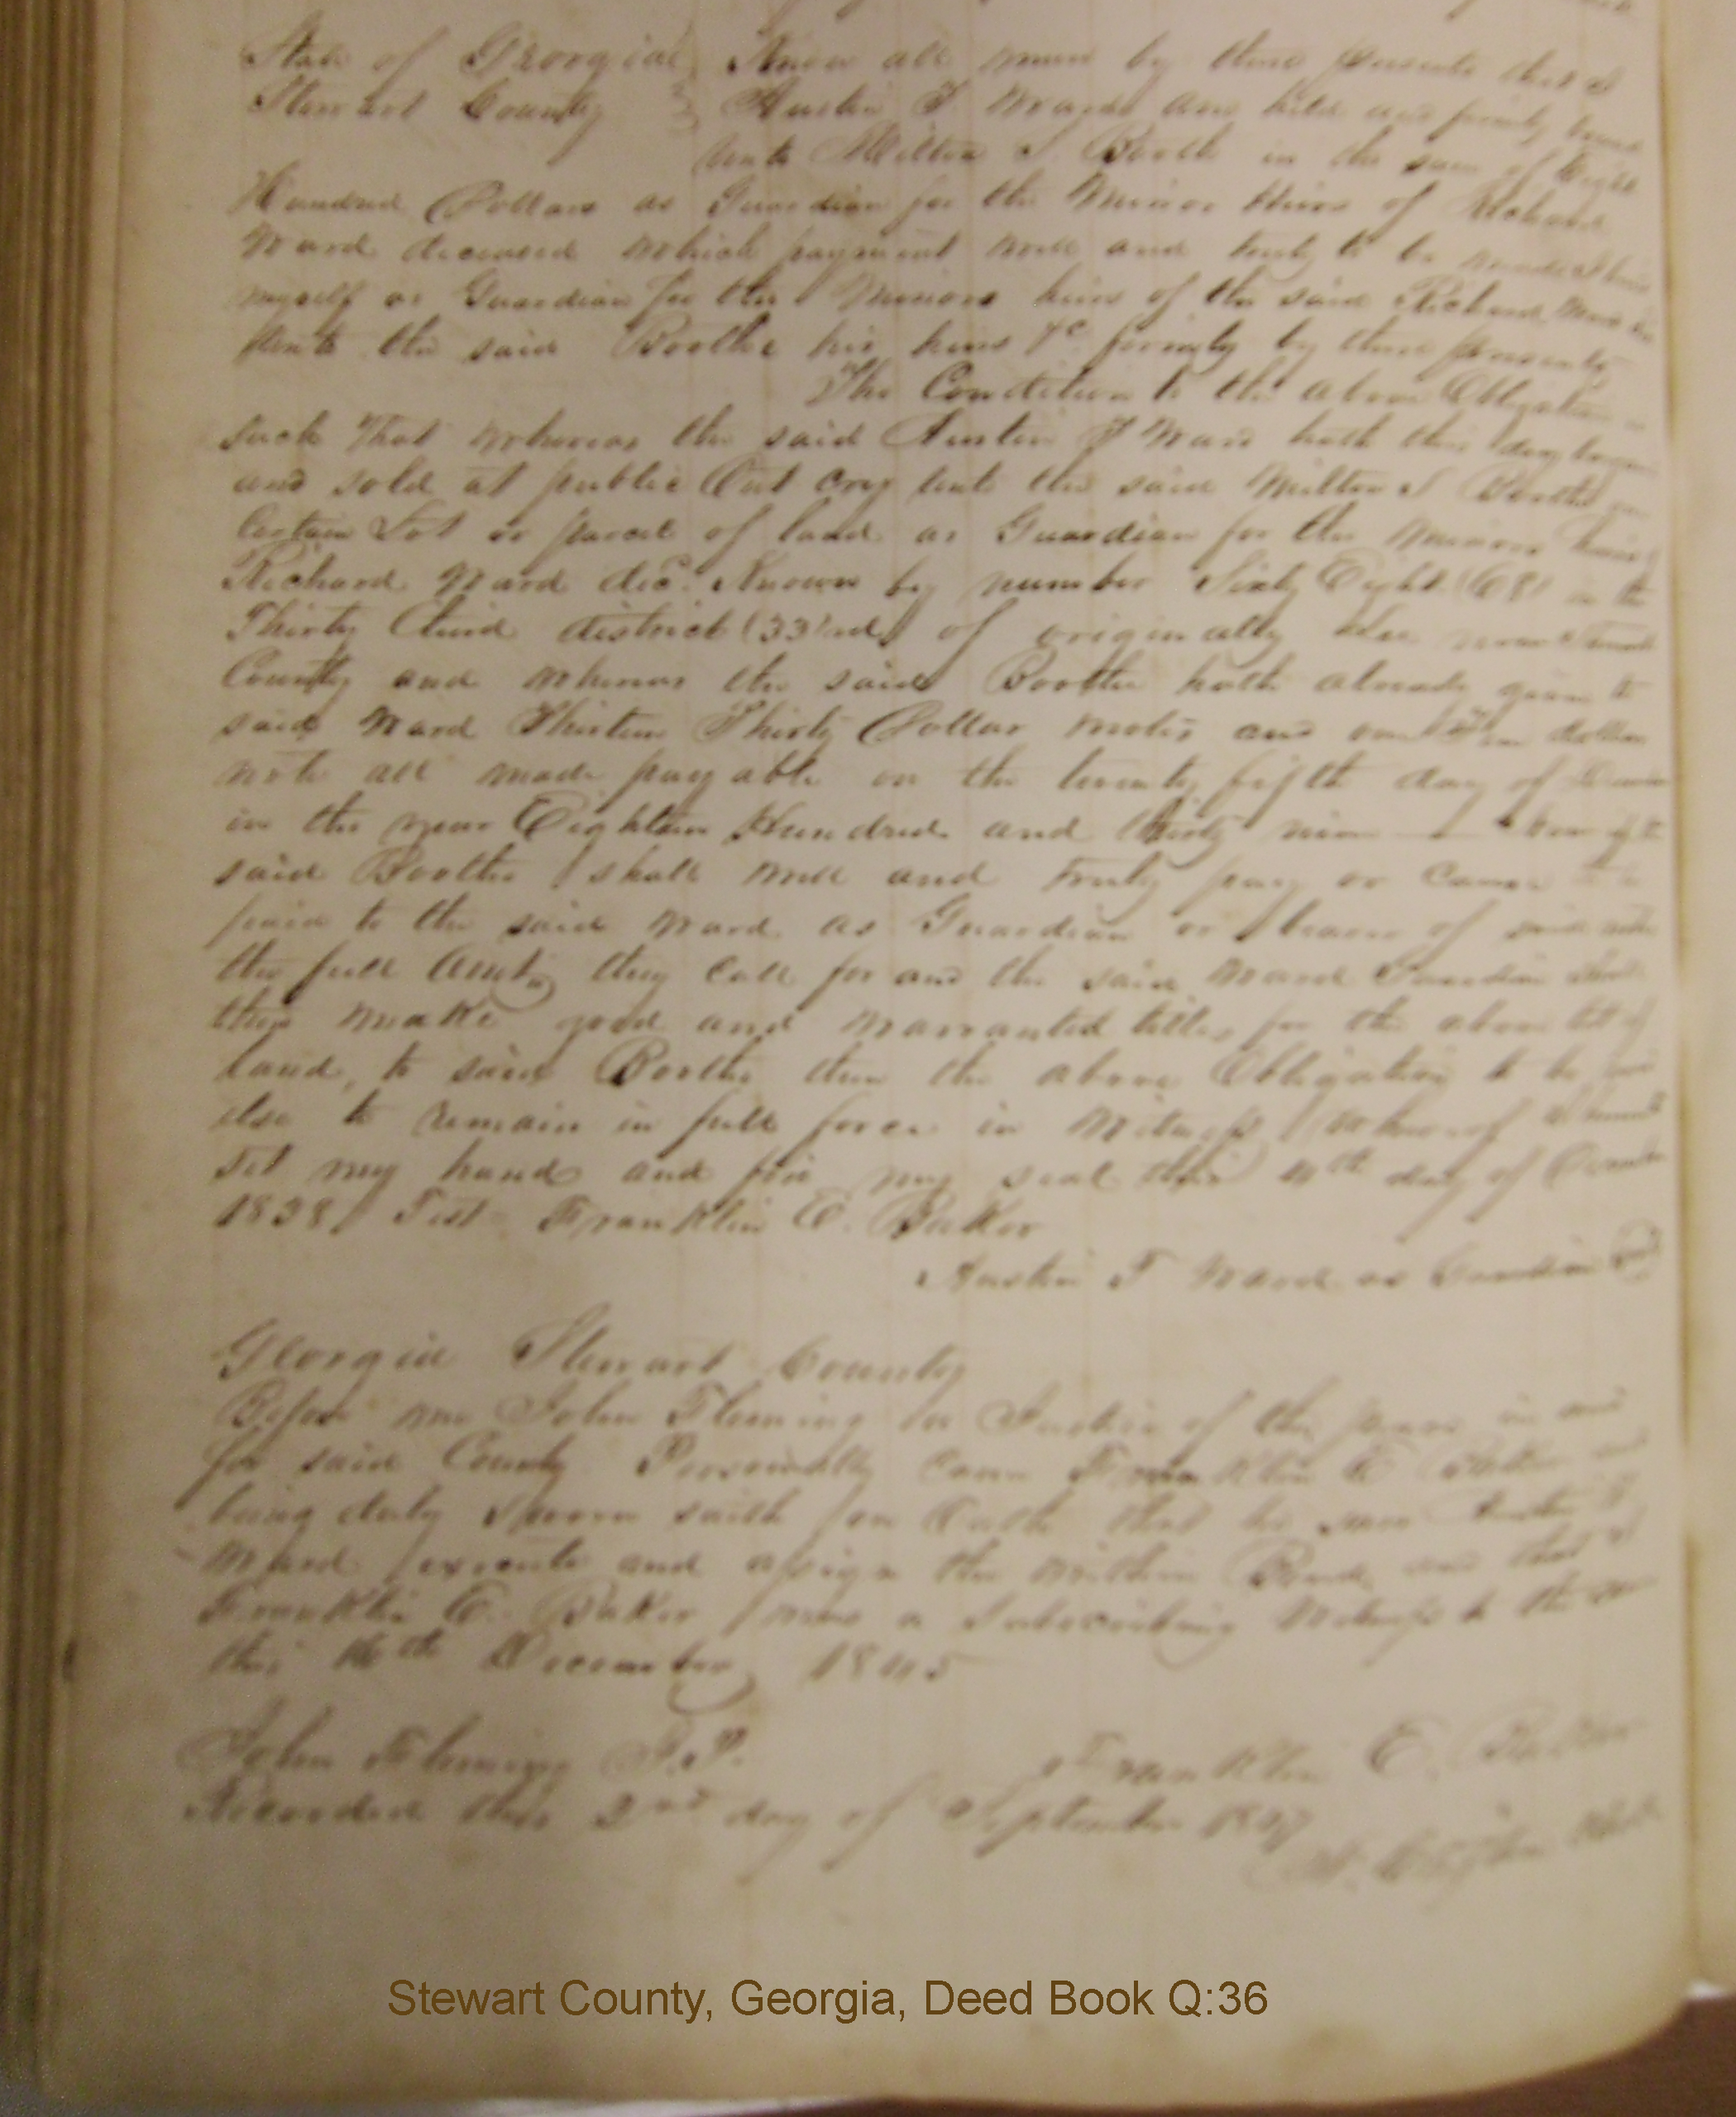 State of Georgia Know all men by these presents that I
Stewart County Austin T Ward am held and firmly bound
unto Milton S. Booth in the sum of Eight
Hundred Dollars as Guardian for the Minor Heirs of Richard
Ward deceased which payment well and truly to be made I bind
myself as Guardian for the Minors heirs of the said Richard Ward
unto the said Boothe his heirs &c firmly by these presents
The Condition to the above Obligation
such That whereas the said Austin T Ward hath this day
and sold at public Out cry unto the said Milton S Boothe
Certain Lot or parcel of land as Guardian for the Minors heirs
Richard Ward dec. Known by number Sixty Eight (68) in the
Thirty third district (33rd) of originally Lee now Stewart
County and whereas the said Boothe hath already given to
said Ward Thirteen Thirty Dollar notes and one Ten dollar
note all made payable on the twenty fifth day of
in the year Eighteen Hundred and thirty nine now if the
said Boothe shall well and truly pay or cause to be
paid to the said Ward as Guardian or bearer of said notes
the full Amt, they call for and the said Ward Guardian shall
then make good and warranted titles for the above lot of
land, to said Boothe then the above Obligation to be void
else to remain in full force in Witness whereof I hereunto
set my hand and fix my seal this 4th day of December
1838 Test Franklin E. Baker
Austin T Ward as Guardian
Georgia Stewart County
Before me John Fleming a Justice of the peace in and
for said County Personally came Franklin E Baker and
being duly sworn saith on Oath that he saw Austin T
Ward execute and assign the within Bond and that
Franklin E. Baker was a Subscribing Witness to the same
this 16th December 1845
John Fleming J.P. Franklin E. Baker
Recorded this 2nd day of September 1847
Stewart County, Georgia, Deed Book Q:36